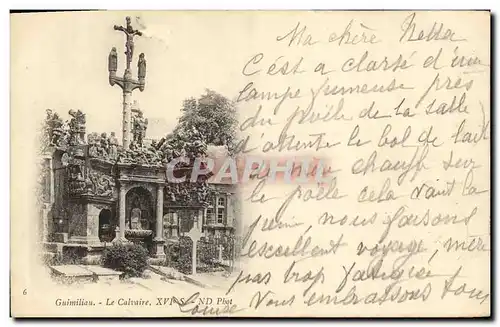 Ma chère Netta
C'est a clarté d'une
lampe fumeuse près
du poële de la salle
d'attente le bol de lait
chauffe sur
le poële cela vaut la
peine, nous faisons
excellent voyage, mère
pas trop fatiguée
Vous embrassons tous
Louise
CPARAMA
6
Guimiliau. - Le Calvaire, XVIe S. - ND Phot